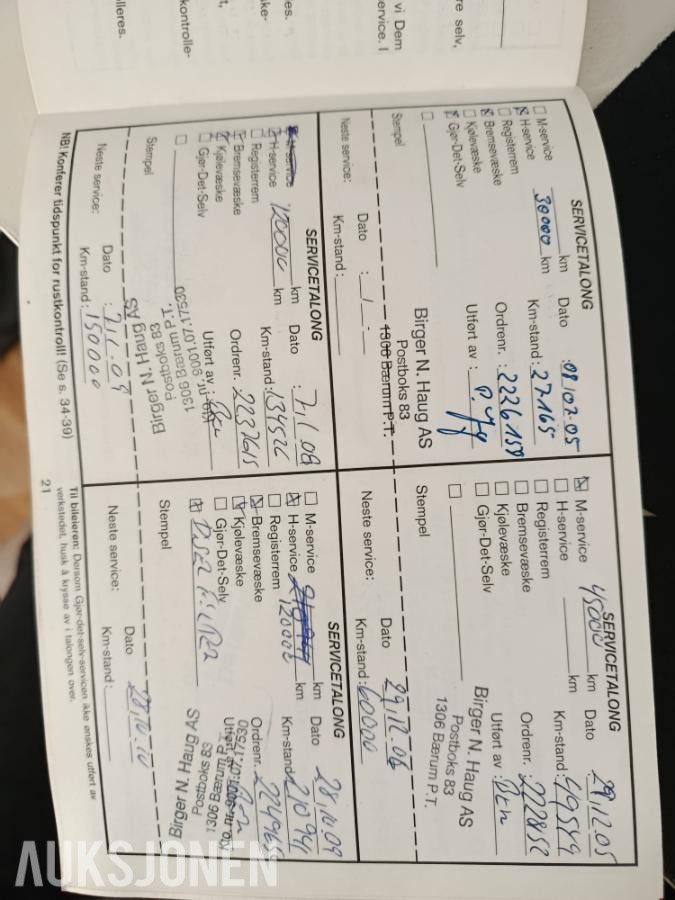 re selv,
vi Dem
service. I
ke-
es.
kontrolle-
t,
olleres.
SERVICETALONG
M-service km Dato : 08.02.05
H-service 30000 km Km-stand: 27165
Registerrem Ordrenr. : 2226159
Bremsevæske Utført av :
Kjølevæske
Gjør-Det-Selv Birger N. Haug AS
Postboks 83
1306 Bærum P.T.
Stempel
Dato :
Neste service: Km-stand:
SERVICETALONG
M-service 45000 km Dato 29.12.05
H-service km Km-stand: 49549
Registerrem Ordrenr. :
Bremsevæske Utført av :
Kjølevæske
Gjør-Det-Selv Birger N. Haug AS
Postboks 83
1306 Bærum P.T.
Stempel
Dato 29.12.06
Neste service: Km-stand: 60000
SERVICETALONG
km Dato : 7.11.08
H-service 120000 km Km-stand: 134526
Registerrem Ordrenr. 2237615
Bremsevæske Utført av :
Kjølevæske
Gjør-Det-Selv
1306 Bærum P.T.
Postboks 83
Birger N. Haug AS
Stempel
Dato : 7.11.09
Neste service: Km-stand: 150000
SERVICETALONG
M-service km Dato 28.10.09
H-service 120000 km Km-stand 210941
Registerrem Ordrenr.
Bremsevæske
Kjølevæske
Gjør-Det-Selv
1306 Bærum P.T.
Postboks 83
Birger N. Haug AS
Stempel
Dato 28.10.10
Neste service: Km-stand:
NB! Konferer tidspunkt for rustkontroll! (Se s. 34-39)
Til bileieren: Dersom Gjør-det-selv-servicen ikke ønskes utført av
verkstedet, husk å krysse av i talongen over.
21
AUKSJONEN